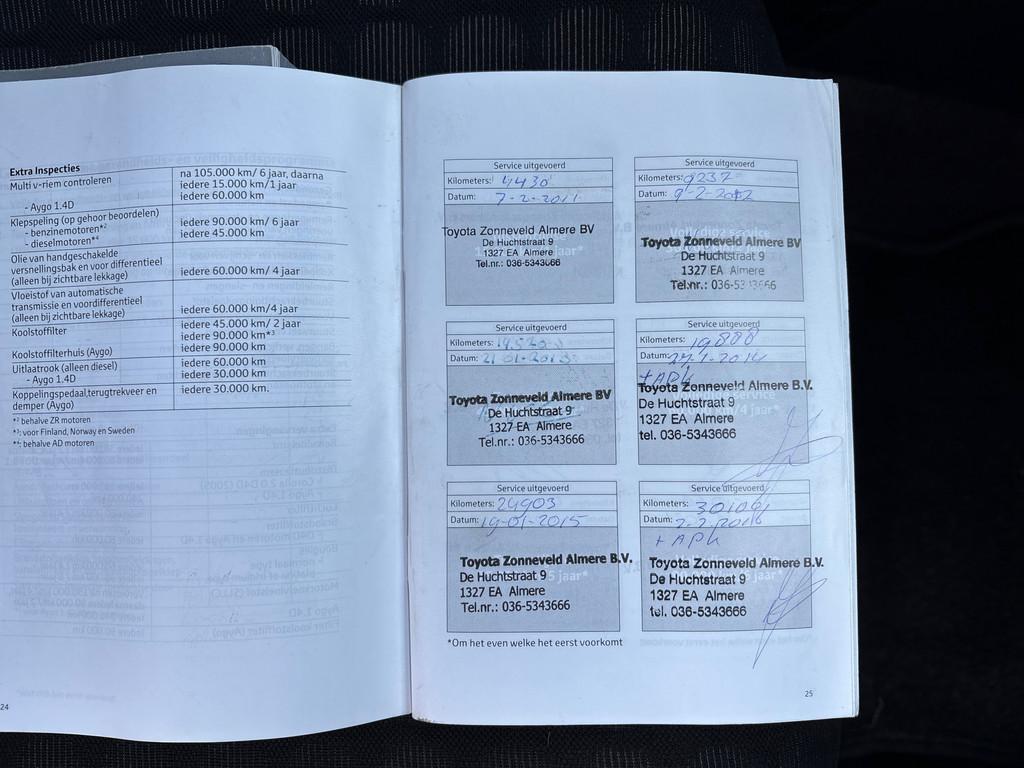 Extra Inspecties
Multi v-riem controleren
na 105.000 km/ 6 jaar, daarna
iedere 15.000 km/1 jaar
- Aygo 1.4D
iedere 60.000 km
Klepspeling (op gehoor beoordelen)
- benzinemotoren*²
iedere 90.000 km/ 6 jaar
- dieselmotoren*⁴
iedere 45.000 km
Olie van handgeschakelde
versnellingsbak en voor differentieel
(alleen bij zichtbare lekkage)
iedere 60.000 km/ 4 jaar
Vloeistof van automatische
transmissie en voordifferentieel
(alleen bij zichtbare lekkage)
iedere 60.000 km/4 jaar
Koolstoffilter
iedere 45.000 km/ 2 jaar
iedere 90.000 km*³
Koolstoffilterhuis (Aygo)
iedere 90.000 km
Uitlaatrook (alleen diesel)
iedere 60.000 km
- Aygo 1.4D
iedere 30.000 km
Koppelingspedaal,terugtrekveer en
demper (Aygo)
iedere 30.000 km.
*² behalve ZR motoren
*³: voor Finland, Norway en Sweden
*⁴: behalve AD motoren
24
Service uitgevoerd
Kilometers: 4430
Datum: 7-2-2011
Toyota Zonneveld Almere BV
De Huchtstraat 9
1327 EA Almere
Tel.nr.: 036-5343666
Service uitgevoerd
Kilometers: 9237
Datum: 9-2-2012
Toyota Zonneveld Almere BV
De Huchtstraat 9
1327 EA Almere
Tel.nr.: 036-5343666
Service uitgevoerd
Kilometers: 14520
Datum: 21-01-2013
Toyota Zonneveld Almere BV
De Huchtstraat 9
1327 EA Almere
Tel.nr.: 036-5343666
Service uitgevoerd
Kilometers: 19888
Datum: 27-1-2014
+ APK
Toyota Zonneveld Almere B.V.
De Huchtstraat 9
1327 EA Almere
tel. 036-5343666
Service uitgevoerd
Kilometers: 24903
Datum: 19-01-2015
Toyota Zonneveld Almere B.V.
De Huchtstraat 9
1327 EA Almere
Tel.nr.: 036-5343666
Service uitgevoerd
Kilometers:
Datum: 2-2-2016
+ APK
Toyota Zonneveld Almere B.V.
De Huchtstraat 9
1327 EA Almere
tel. 036-5343666
*Om het even welke het eerst voorkomt
25